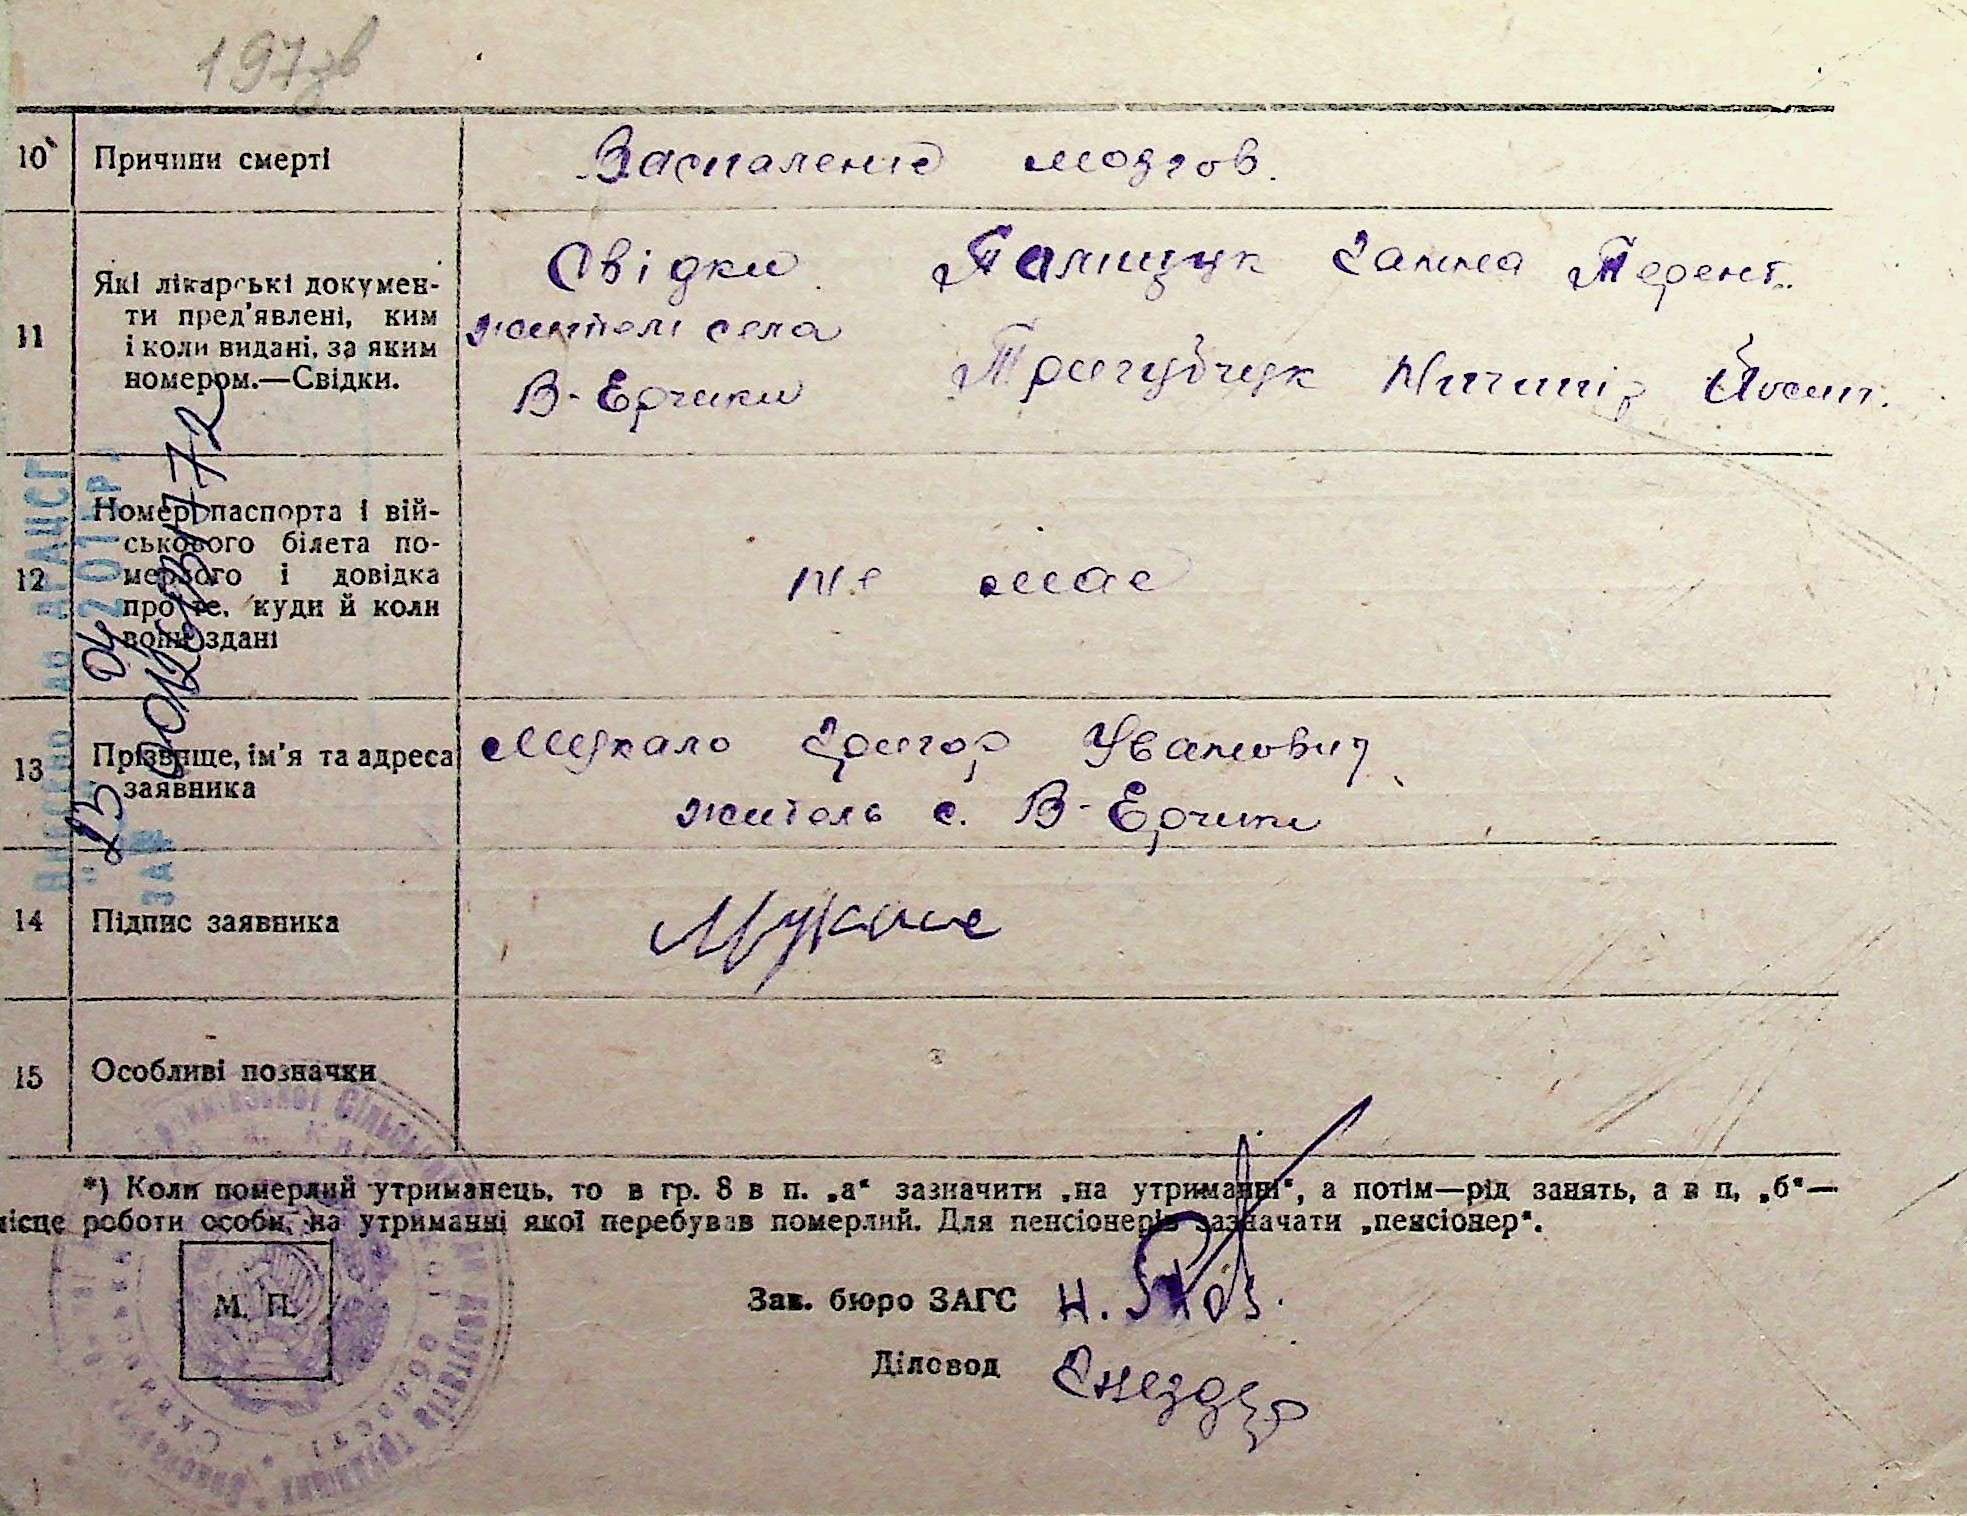 197зв
10 Причини смерті
Васпаление мозгов.
11 Які лікарські докумен-
ти пред'явлені, ким
і коли видані, за яким
номером.—Свідки.
Свідки Палищук Ганна Терент.
жителі села
В-Ерчики
Тригубчук Ничипір Йосип.
12 Номер паспорта і вій-
ськового білета по-
мерлого і довідка
про те, куди й коли
вони здані
не має
13 Прізвище, ім'я та адреса
заявника
Мукало Григор Уванович
житель с. В-Ерчики
14 Підпис заявника
15 Особливі позначки
*) Коли померлий утриманець, то в гр. 8 в п. „а“ зазначити „на утриманні“, а потім—рід занять, а в п. „б“—
місце роботи особи, на утриманні якої перебував померлий. Для пенсіонерів зазначати „пенсіонер“.
М. П.
Зав. бюро ЗАГС
Діловод
ВНЕСЕНО ДО ДРАЦСГ